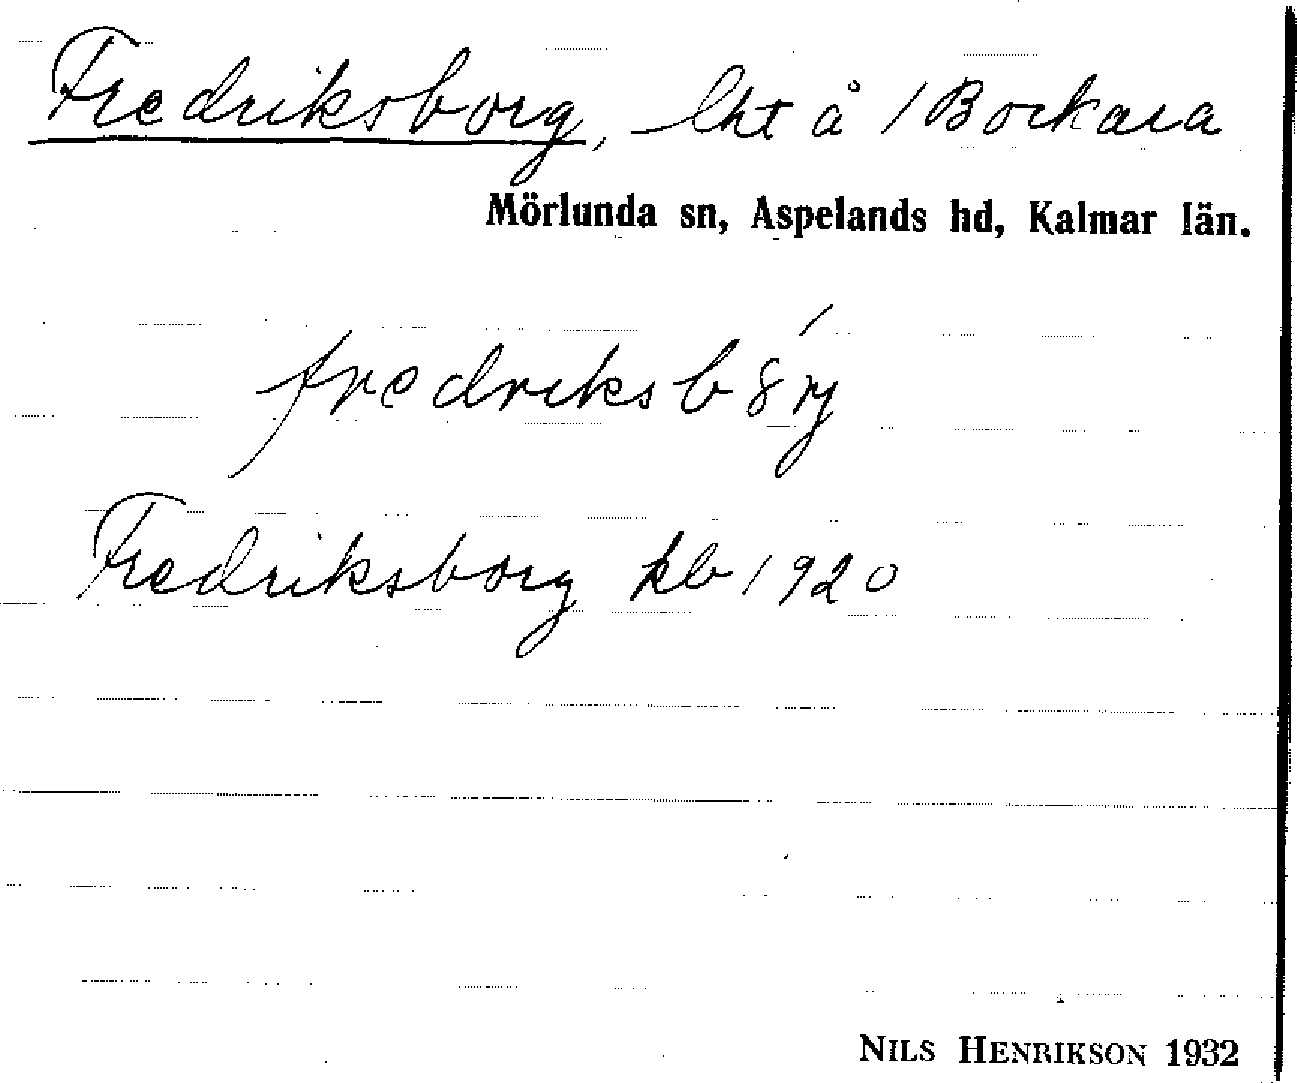 Fredriksborg, lht å 1 Bockara
Mörlunda sn, Aspelands hd, Kalmar län.
fredriksb8́rj
Fredriksborg kb 1920
NILS HENRIKSON 1932